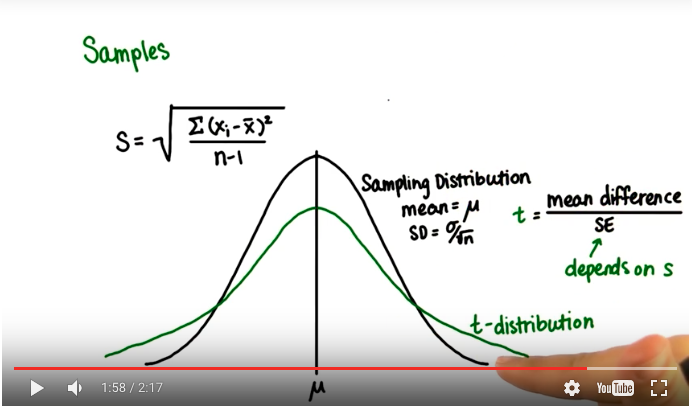 Samples
S = √(Σ(xᵢ - x̄)² / n-1)
Sampling Distribution
mean = μ
SD = σ/√n
t = mean difference / SE
depends on s
t-distribution
μ
1:58 / 2:17
YouTube